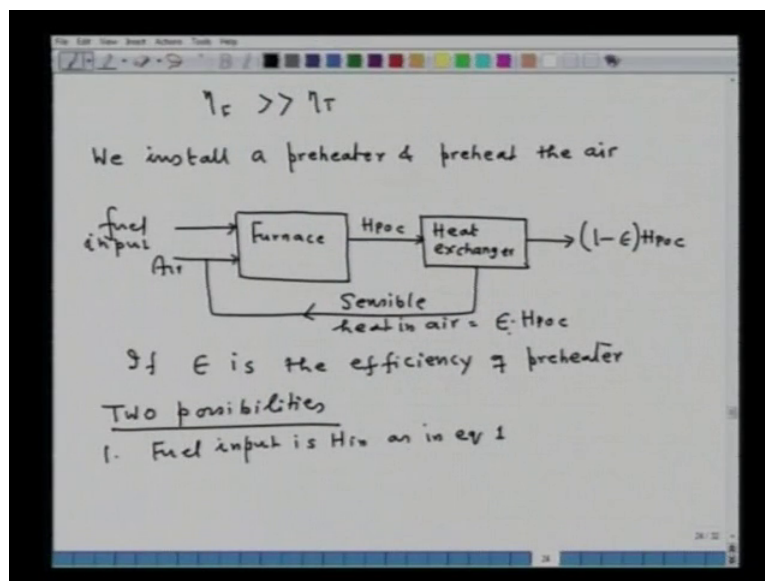 File Edit View Insert Actions Tools Help
ηF >> ηT
We install a preheater & preheat the air
fuel input
Air
Furnace
HPOC
Heat exchanger
(1-ε)HPOC
Sensible
heat in air = ε·HPOC
If ε is the efficiency of preheater
Two possibilities
1. Fuel input is Hin as in eq 1